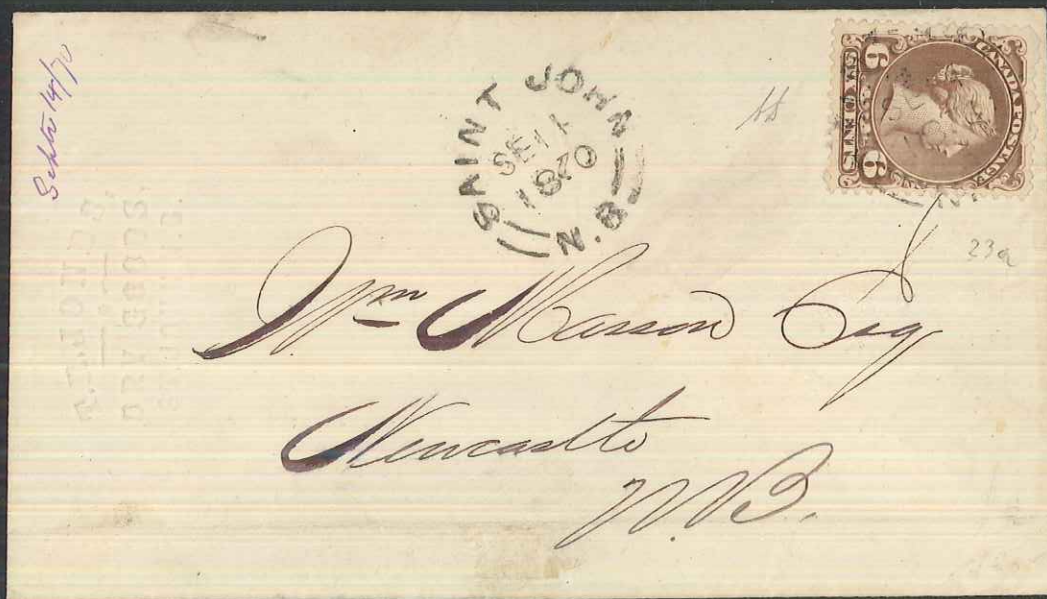 Septr 14/70
SAINT JOHN
SE 14
1870
N.B.
CANADA POSTAGE
SIX CENTS
6 6
23a
Wm Masson Esq
Newcastle
N.B.